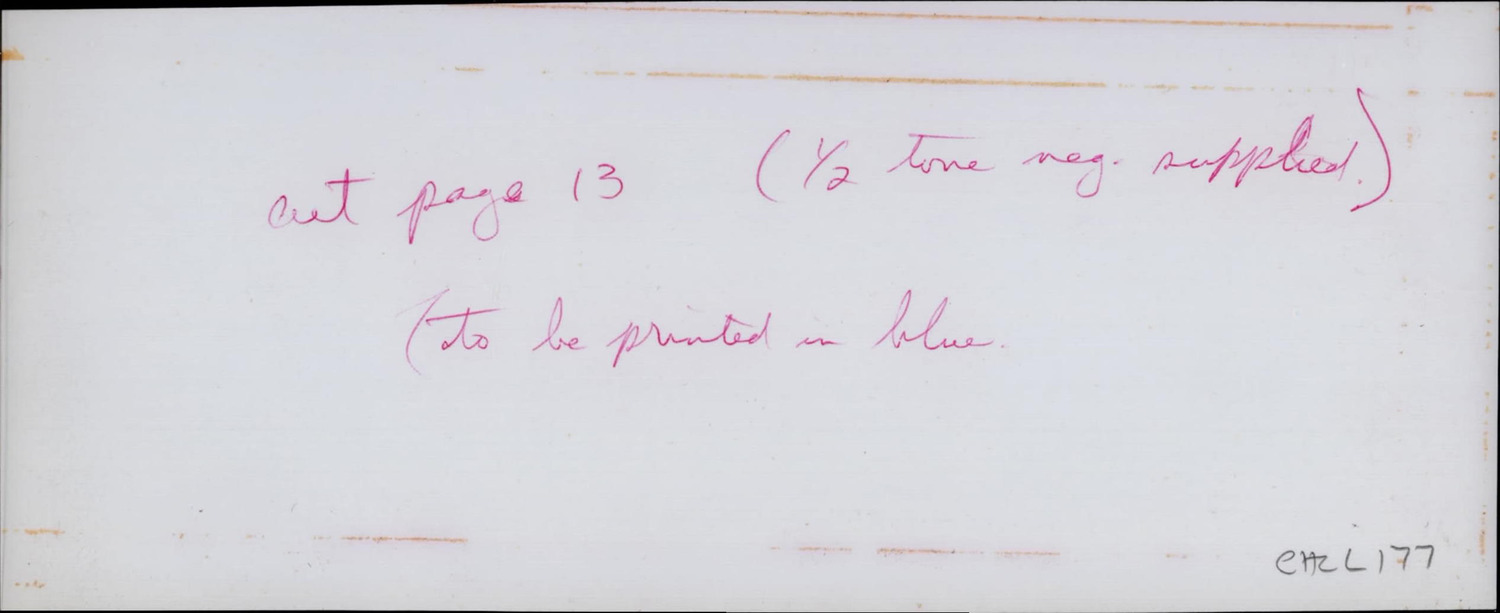 cut page 13 (1/2 tone neg. supplied.)
(to be printed in blue.
CHCL177